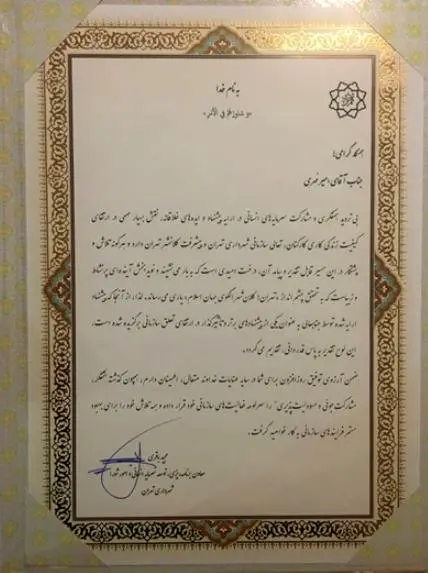 به نام خدا
«و شاورهم فی الأمر»
همکار گرامی؛
جناب آقای امیر مهری
بی تردید همفکری و مشارکت سرمایه‌های انسانی در ارایه پیشنهاد و ایده‌های خلاقانه، نقش بسیار مهمی در ارتقای
کیفیت زندگی کاری کارکنان، تعالی سازمانی شهرداری تهران و پیشرفت کلانشهر تهران دارد و هرگونه تلاش و
پشتکار در این مسیر قابل تقدیر و پیامد آن، درخت امیدی است که به بار می‌نشیند و نوید بخش آینده‌ای پرنشاط
و زیباست که به تحقق چشم انداز ما، تهران؛ کلان شهر الگوی جهان اسلام، یاری می‌رساند. لذا، از آنجا که پیشنهاد
ارایه شده توسط جنابعالی به عنوان یکی از پیشنهادهای برتر و تاثیرگذار در ارتقای تعلق سازمانی برگزیده شده است،
این لوح تقدیر به پاس قدردانی، تقدیم می‌گردد.
ضمن آرزوی توفیق روزافزون برای شما در سایه عنایات خداوند متعال، اطمینان دارم، همچون گذشته تفکر،
مشارکت جویی و مسوولیت پذیری را سرلوحه فعالیت‌های سازمانی خود قرار داده و همه تلاش خود را برای بهبود
مستمر فرایندهای سازمانی به کار خواهید گرفت.
مجید باقری
معاون برنامه‌ریزی، توسعه سرمایه انسانی و امور شورا
شهرداری تهران